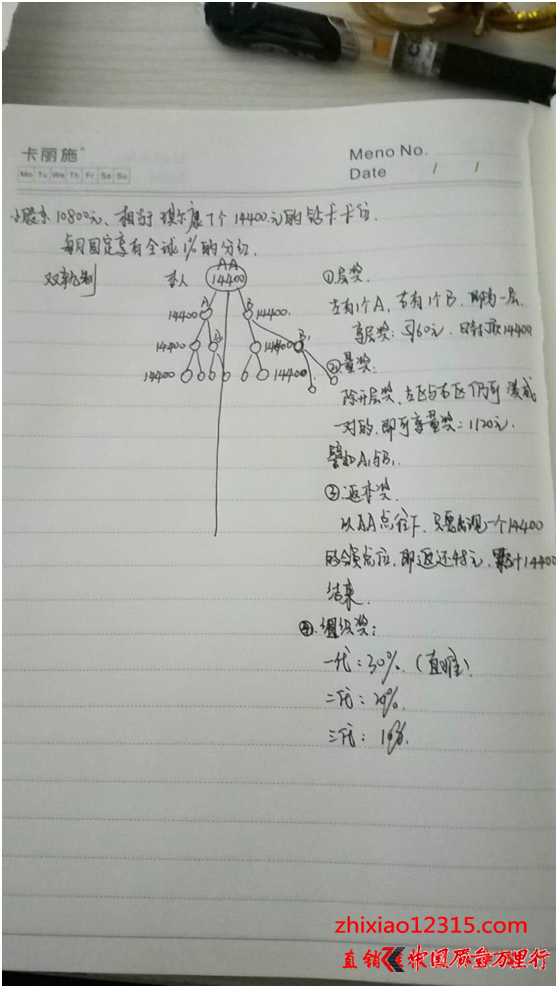 卡丽施
Meno No.
Mo Tu We Th Fr Sa Su
Date / /
小股东10800元、相当于 康 14400元的钻卡卡位.
每月固定享有全球1%的分红.
双轨制
本人
AA
14400
①层奖.
14400 A B 14400.
左有1个A, 右有1个B, 即为一层.
14400 14400 B1
享层奖: 元, 日封顶14400
14400 14400
②量奖:
除开层奖, 左区与右区仍可凑成
一对的, 即可享量奖: 1120元.
譬如A1与B1.
③返本奖.
以AA点往下, 只要出现一个14400
的会员点位, 即返还48元, 累计14400
结束.
④.组织奖:
一代: 30%. (直推)
二代: 20%.
三代: 10%.
zhixiao12315.com
直销
中国质量万里行